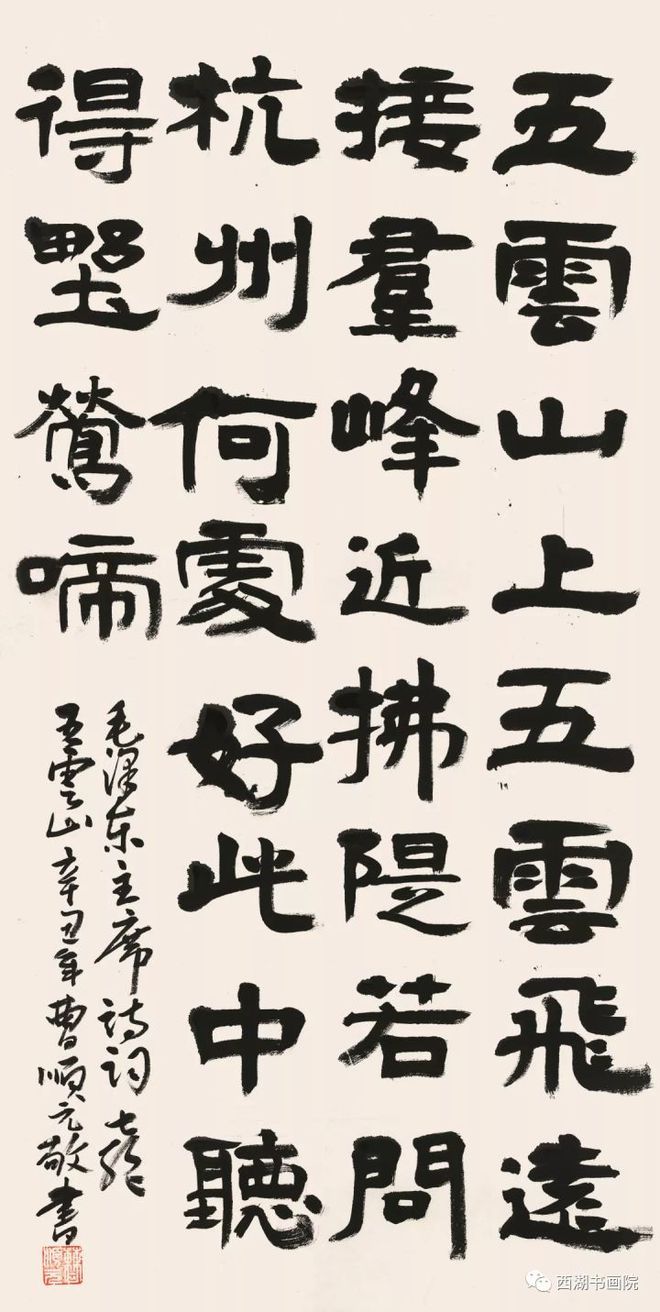 五雲山上五雲飛遠
接羣峰近拂隄若問
杭州何處好此中聽
得埜鶯啼
毛泽东主席诗词七绝
五雲山辛丑年曹順元敬书
西湖书画院